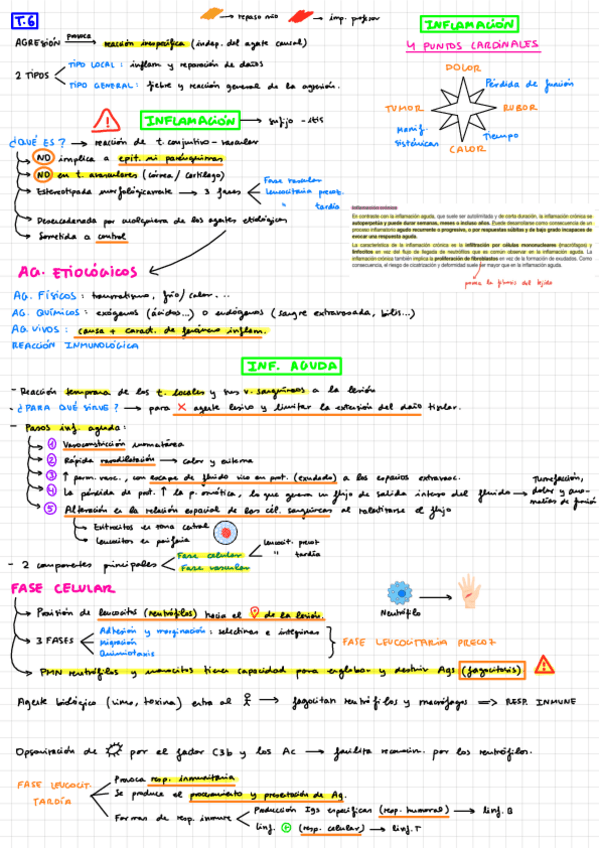 T.6
→ repaso mío → imp. profesor
INFLAMACIÓN
4 PUNTOS CARDINALES
AGRESIÓN provoca → reacción inespecífica (indep. del agente causal)
2 TIPOS
TIPO LOCAL: inflam y reparación de daños
TIPO GENERAL: fiebre y reacción general de la agresión.
DOLOR
Pérdida de función
TUMOR
RUBOR
Manif. sistémicas
Tiempo
CALOR
INFLAMACIÓN → sufijo -itis
¿QUÉ ES? → reacción de t. conjuntivo-vascular
→ NO implica a epit. ni parénquimas
→ NO en t. avasculares (córnea/cartílago)
→ Estereotipada morfológicamente → 3 fases
Fase vascular
Leucocitaria precoz
" tardía
→ Desencadenada por cualquiera de los agentes etiológicos
→ Sometida a control
Inflamación crónica
En contraste con la inflamación aguda, que suele ser autolimitada y de corta duración, la inflamación crónica se
autoperpetúa y puede durar semanas, meses o incluso años. Puede desarrollarse como consecuencia de un
proceso inflamatorio agudo recurrente o progresivo, o por respuestas súbitas y de bajo grado incapaces de
evocar una respuesta aguda.
La característica de la inflamación crónica es la infiltración por células mononucleares (macrófagos) y
linfocitos en vez del flujo de llegada de neutrófilos que es común observar en la inflamación aguda. La
inflamación crónica también implica la proliferación de fibroblastos en vez de la formación de exudados. Como
consecuencia, el riesgo de cicatrización y deformidad suele ser mayor que en la inflamación aguda.
provoca la fibrosis del tejido
AG. ETIOLÓGICOS
AG. FÍSICOS: traumatismo, frío/calor...
AG. QUÍMICOS: exógenos (ácidos...) o endógenos (sangre extravasada, bilis...)
AG. VIVOS: causa + caract. de fenómeno inflam.
REACCIÓN INMUNOLÓGICA
INF. AGUDA
- Reacción temprana de los t. locales y sus v. sanguíneos a la lesión
- ¿PARA QUÉ SIRVE? → para X agente lesivo y limitar la extensión del daño tisular.
- Pasos inf. aguda:
→ 1 Vasoconstricción momentánea
→ 2 Rápida vasodilatación → calor y eritema
→ 3 ↑ perm. vasc., con escape de fluido rico en prot. (exudado) a los espacios extravasc.
→ 4 La pérdida de prot. ↑ la p. osmótica, lo que genera un flujo de salida intenso del fluido → Tumefacción, dolor y anomalías de función
→ 5 Alteración en la relación espacial de las cél. sanguíneas al ralentizarse el flujo
→ Eritrocitos en zona central
→ Leucocitos en periferia
- 2 componentes principales
Fase celular
Leucocit. precoz
" tardía
Fase vascular
FASE CELULAR
→ Posición de leucocitos (neutrófilos) hacia el de la lesión.
Neutrófilo
→ 3 FASES
Adhesión y marginación: selectinas e integrinas
Migración
Quimiotaxis
FASE LEUCOCITARIA PRECOZ
→ PMN neutrófilos y monocitos tienen capacidad para englobar y destruir Ags (fagocitosis)
Agente biológico (virus, toxina) entra al → fagocitan neutrófilos y macrófagos ⇒ RESP. INMUNE
Opsonización de por el factor C3b y los Ac → facilita reconocim. por los neutrófilos.
FASE LEUCOCIT. TARDÍA
Provoca resp. inmunitaria
Se produce el procesamiento y presentación de Ag.
Formas de resp. inmune
Producción Igs específicas (resp. humoral) → linf. B
linf. + (resp. celular) → linf. T